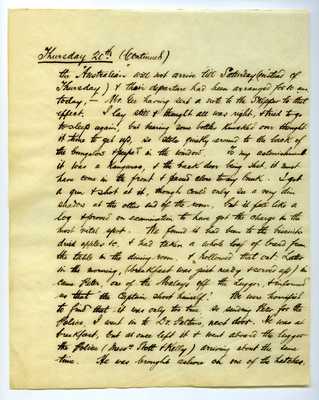 Thursday 20th (Continued)
the "Australian" will not arrive till Saturday (instead of
Thursday) & their departure had been arranged for 10 am
today, — Mr. Lee having sent a note to the Skipper to that
effect. I lay still & thought all was right, & tried to go
to sleep again, but hearing some bottles knocked over thought
it time to get up, so stole quietly around to the back of
the bungalow & peeped in the window. To my astonishment
it was a kangaroo, & the back door being shut it must
have come in the front & passed close to my bunk. I got
a gun & shot at it, though could only see a very dim
shadow at the other end of the room. but it fell like a
log & proved on examination to have got the charge in the
most vital spot. We found it had been to the biscuits
dried apples &c. & had taken a whole loaf of bread from
the table in the dining room, & hollowed that out. Later
in the morning, (breakfast was just ready & served up) in
came Peter, one of the Malays off the lugger, & informed
us that "the Captain shoot himself." We were horrified
to find that it was only too true, so sending Peter for the
Police, I went in to Dr. next door. He was at
breakfast, but at once left it & went aboard the lugger
the Police (Messrs Stott & Kelly) arriving about the same
time. He was brought ashore on one of the hatches,